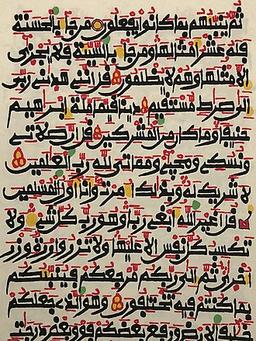 ثم ينبئهم بما كانوا يفعلون من جاء بالحسنة
فله عشر أمثالها ومن جاء بالسيئة فلا يجزى
إلا مثلها وهم لا يظلمون قل إنني هديني ربي
إلى صراط مستقيم دينا قيما ملة إبراهيم
حنيفا وما كان من المشركين قل إن صلاتي
ونسكي ومحياي ومماتي لله رب العلمين
لا شريك له وبذلك أمرت وأنا أول المسلمين
قل أغير الله أبغي ربا وهو رب كل شيء ولا
تكسب كل نفس إلا عليها ولا تزر وازرة وزر
أخرى ثم إلى ربكم مرجعكم فينبئكم
بما كنتم فيه تختلفون وهو الذي جعلكم
خلئف الأرض ورفع بعضكم فوق بعض درجت